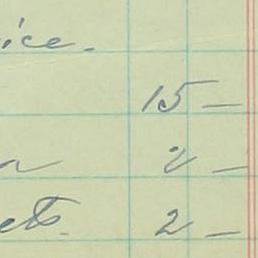 ice.
15 —
2 —
ets. 2 —